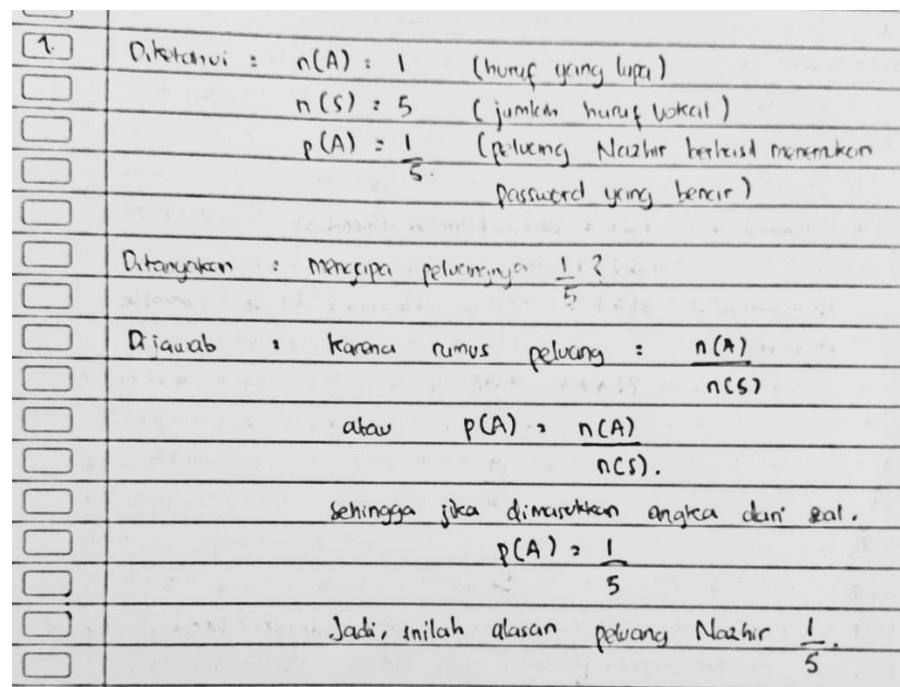 1. Diketahui : n(A) : 1 (huruf yang lupa)
n(S) : 5 (jumlah huruf vokal)
p(A) = 1/5. (peluang Nazhir berhasil menemukan
password yang benar)
Ditanyakan : mengapa peluangnya 1/5?
Dijawab : Karena rumus peluang : n(A)/n(S)
atau p(A) = n(A)/n(S).
Sehingga jika dimasukkan angka dari soal.
p(A) = 1/5
Jadi, inilah alasan peluang Nazhir 1/5.